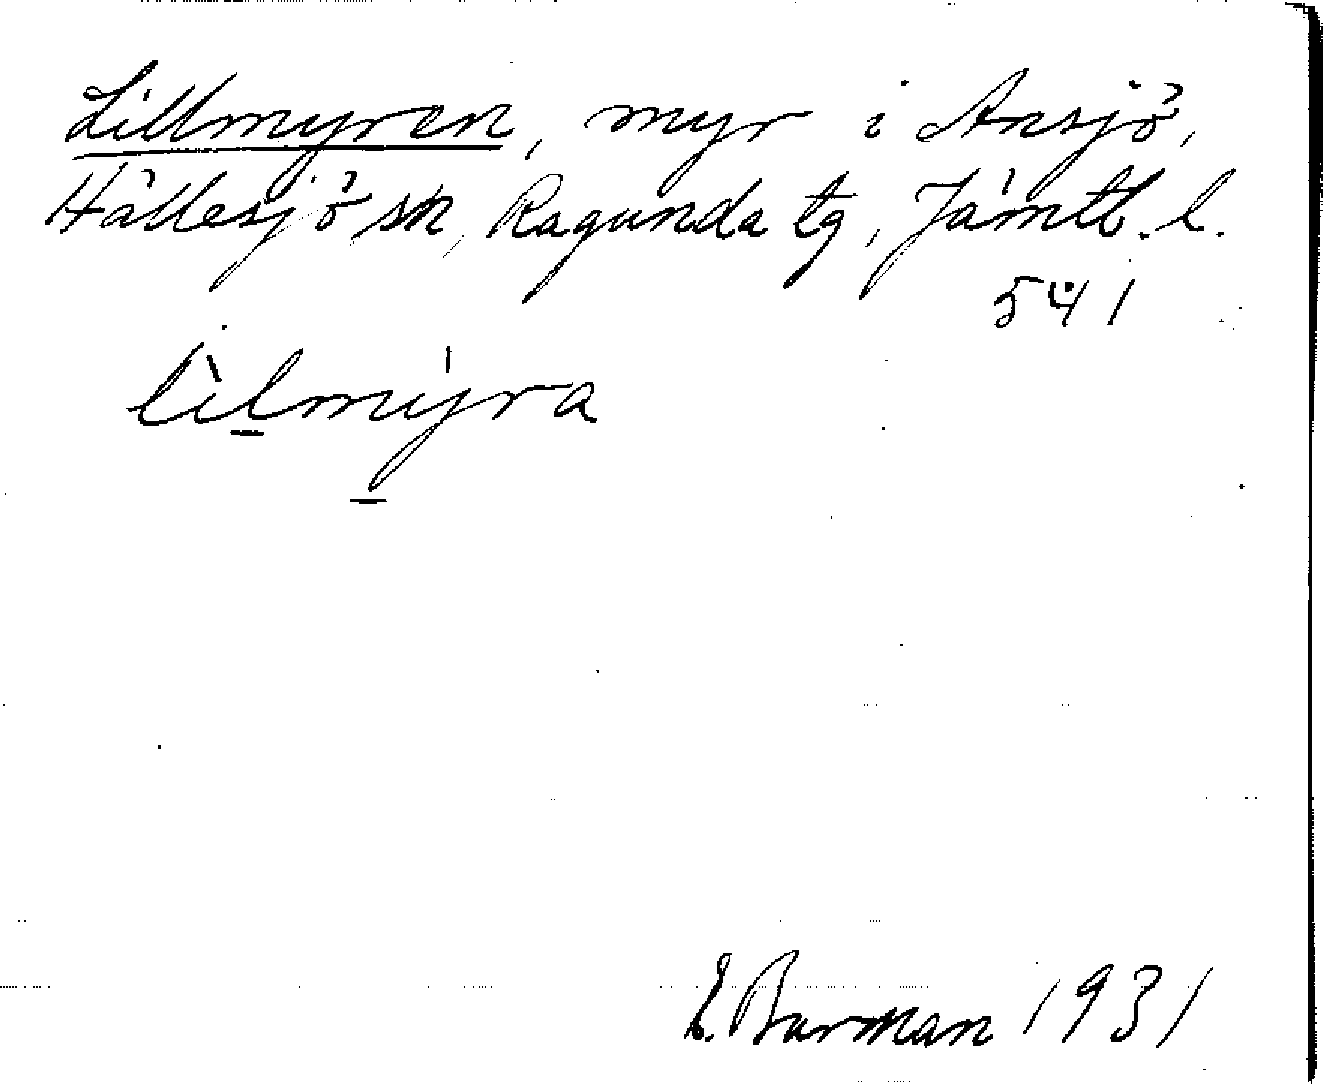 Lillmyren, myr i Ansjö,
Hällesjö sn, Ragunda tg, Jämtl. l.
541
lìlmýra
E. Burman 1931